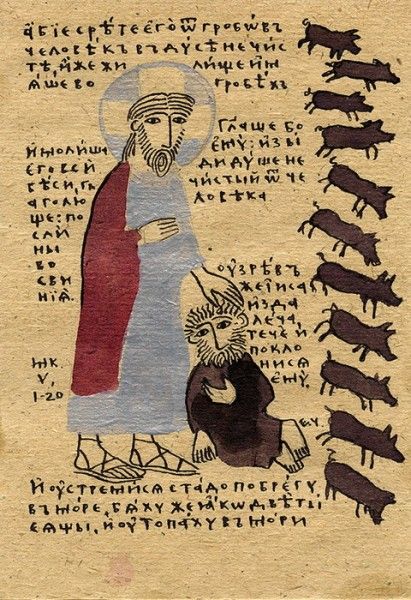 АБІЕ СРѢТЕ ЕГО Ѿ ГРОБѠВЪ
ЧЕЛОВѢКЪ ВЪ ДУСѢ НЕЧИС
ТѢ, ИЖЕ ЖИ ЛИЩЕ ИМ
ѦШЕ ВО ГРОБѢХЪ
ГЛАШЕ БО
ЕМУ: ИЗЫ
ДИ ДУШЕ НЕ
ЧИСТЫЙ Ѿ ЧЕ
ЛОВѢКА
И МОЛИША
ЕГО ВСИ
БѢСИ, ГЛ
АГОЛЮ
ЩЕ: ПО
СЛИ
НЫ
ВО
СВИ
НІѦ.
ОУЗРѢВЪ
ЖЕ ІИСА
ИЗДА
ЛЕЧА,
ТЕЧЕ И
ПОКЛО
НИСѦ
ЕМУ,
МК
V,
1-20
И ОУСТРЕМИСѦ СТАДО ПО БРЕГУ
ВЪ МОРЕ, БѦХУ ЖЕ ІАКѠ ДВѢ ТЫ
СѦЩЫ, И ОУТОПАХУ ВЪ МОРИ